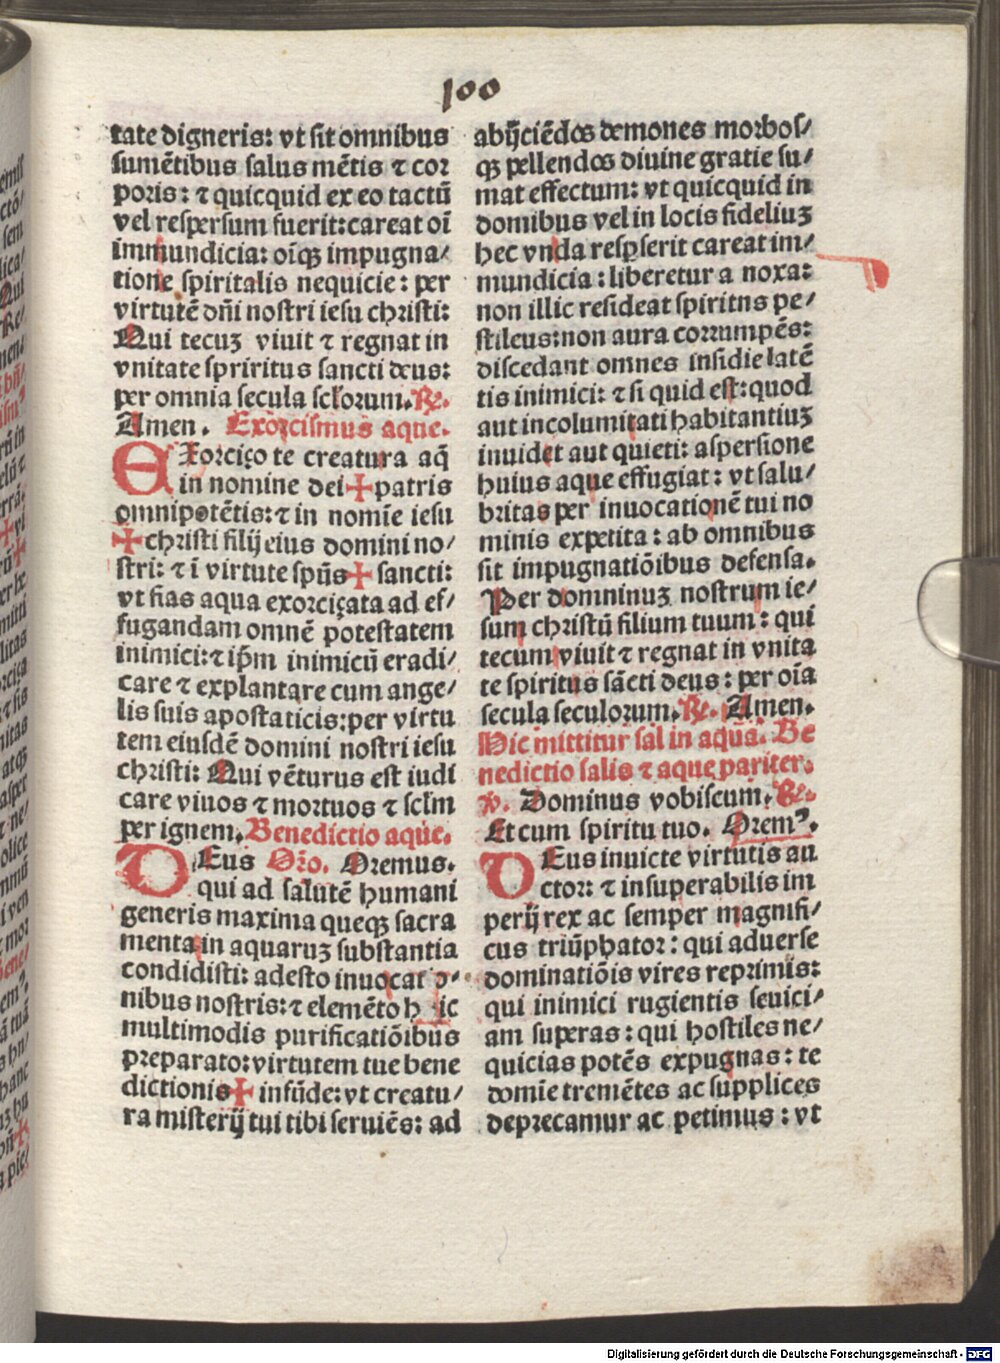 100
tate digneris: vt sit omnibus
sumētibus salus mētis ⁊ cor
poris: ⁊ quicquid ex eo tactū
vel respersum fuerit: careat oī
immundicia: oīqꝫ impugna/
tione spiritalis nequicie: per
virtutē dn̄i nostri iesu christi:
Qui tecuꝫ viuit ⁊ regnat in
vnitate spriritus sancti deus:
per omnia secula scl̓orum. ℟.
Amen. Exorcismus aque.
EXorciço te creatura aq̄
in nomine dei ✠ patris
omnipotētis: ⁊ in nomīe iesu
✠ christi filij eius domini no/
stri: ⁊ ī virtute spūs ✠ sancti:
vt fias aqua exorciçata ad ef/
fugandam omnē potestatem
inimici: ⁊ ip̄m inimicū eradi/
care ⁊ explantare cum ange/
lis suis apostaticis: per virtu
tem eiusdē domini nostri iesu
christi: Qui vēturus est iudi
care viuos ⁊ mortuos ⁊ scl̓m
per ignem. Benedictio aque.
DEus Oꝛo. Oremus.
qui ad salutē humani
generis maxima queqꝫ sacra
menta in aquaruꝫ substantia
condidisti: adesto inuocat
nibus nostris: ⁊ elemēto h ic
multimodis purificatiōibus
preparato: virtutem tue bene
dictionis ✠ infūde: vt creatu/
ra misterij tui tibi seruiēs: ad
abijciēdos demones morbos/
qꝫ pellendos diuine gratie su/
mat effectum: vt quicquid in
domibus vel in locis fideliuꝫ
hec vnda resꝑserit careat im/
mundicia: liberetur a noxa:
non illic resideat spiritns pe/
stileus: non aura corrumpēs:
discedant omnes insidie latē
tis inimici: ⁊ si quid est: quod
aut incolumitati habitantiuꝫ
inuidet aut quieti: aspersione
huius aque effugiat: vt salu/
britas per inuocationē tui no
minis expetita: ab omnibus
sit impugnatiōibus defensa.
Per domninuꝫ nostrum ie/
sum christū filium tuum: qui
tecum viuit ⁊ regnat in vnita
te spiritus sācti deus: per oīa
secula seculorum. ℟. Amen.
Hic mittitur sal in aquā. Be
nedictio salis ⁊ aque pariter.
℣. Dominus vobiscum. ℟.
Et cum spiritu tuo. Orem⁹.
DEus inuicte virtutis au
ctor: ⁊ insuperabilis im
perij rex ac semper magnifi/
cus triūphator: qui aduerse
dominatiōis vires reprimis:
qui inimici rugientis seuici/
am superas: qui hostiles ne/
quicias potēs expugnas: te
domīe tremētes ac supplices
deprecamur ac petimus: vt
Digitalisierung gefördert durch die Deutsche Forschungsgemeinschaft - DFG